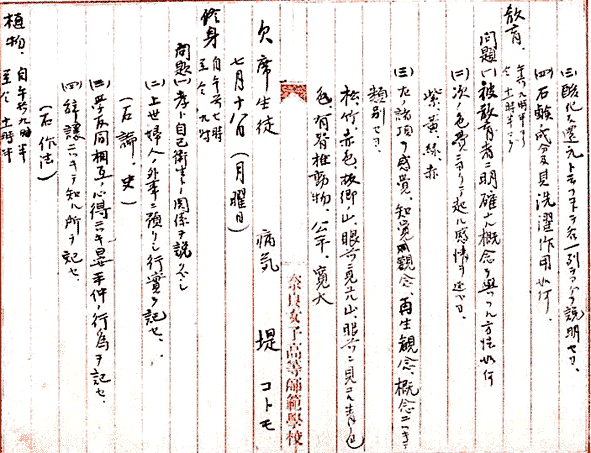 (三)酸化及還元トニツキテ各一列ヲアゲ説明セヨ.
(四)石鹸ノ成分及見洗濯作用如何.
教育. 午前九時ヨリ
仝 十時マデ
問題(一)被教育者ニ明確ナル概念ヲ與フル方法如何
(二)次ノ色賛ニヨリテ起ル感情ヲ述ベヨ.
紫、黄、緑、赤
(三)左ノ諸項ヲ感覚、知覚、観念、再生観念、概念ニツキテ
類別セヨ.
松、竹、赤色、故郷ノ山、眼前ニ見エル山、眼前ニ見エル青
色、有脊椎動物、公平、寛大
奈良女子高等師範學校
欠席生徒 病気 堤 コトモ
七月十八日(月曜日)
修身 自午前七時
至仝 九時
問題(一)孝ト自己衛生トノ関係ヲ説クベシ
(二)上世婦人ノ外事ニ預リシ行實ヲ記セ.
(右論、史)
(三)学友同相互ノ心得ニツキ要件ノ行為ヲ記セ.
(四)辞譲ニツキテ知ル所ヲ記セ.
(右作法)
植物. 自午前九時半
至仝 十時半